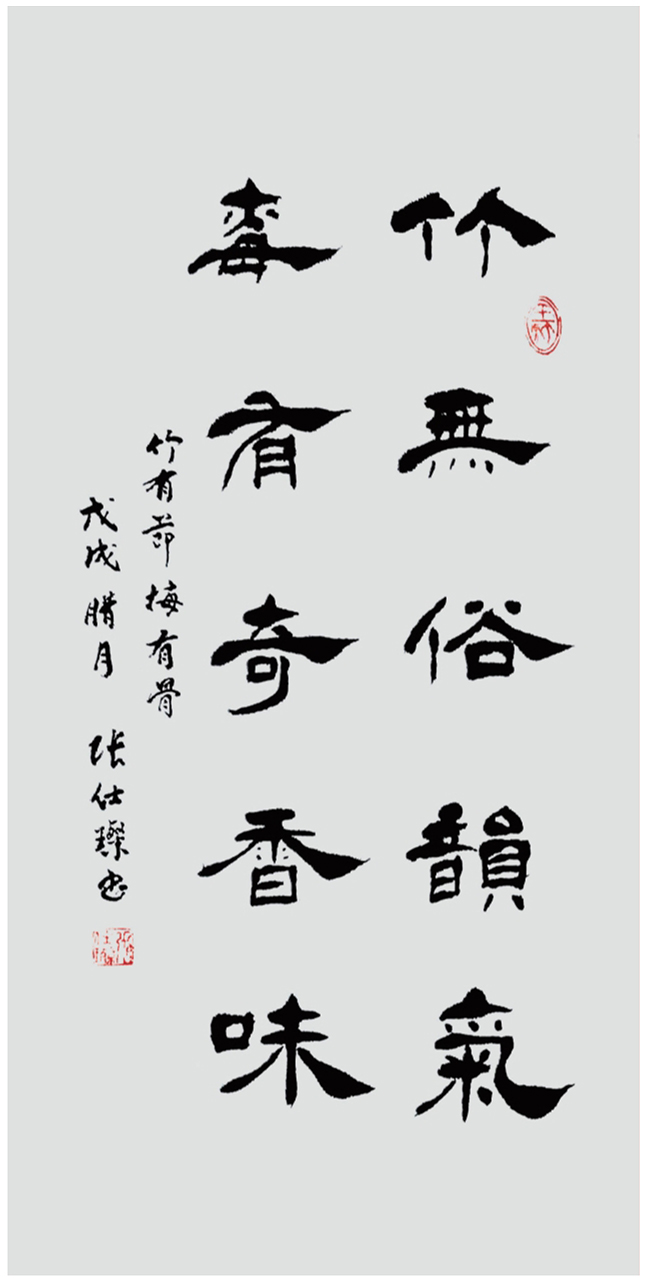 竹無俗韻氣
梅有奇香味
竹有節梅有骨
戊戌腊月 张仕璨书